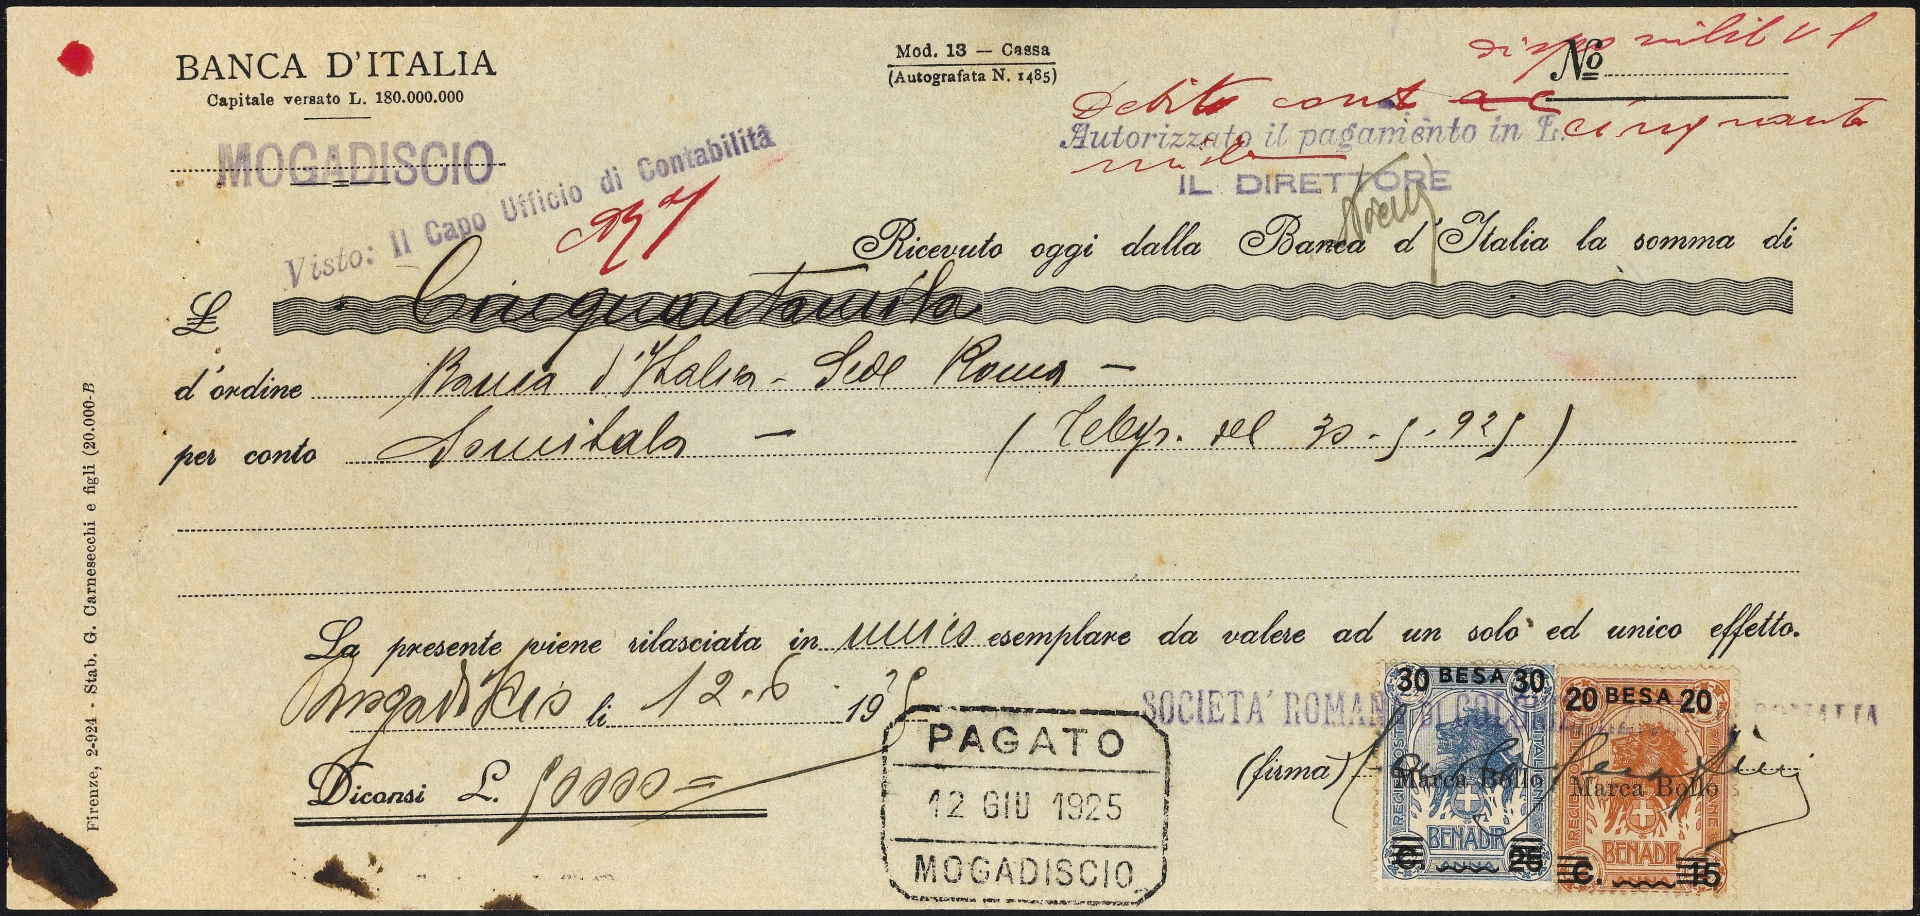 BANCA D'ITALIA
Capitale versato L. 180.000.000
MOGADISCIO
Mod. 13 — Cassa
(Autografata N. 1485)
No
Debito conto
Autorizzato il pagamento in L. cinquanta
mila
IL DIRETTORE
Visto: Il Capo Ufficio di Contabilità
Ricevuto oggi dalla Banca d'Italia la somma di
L Cinquantamila
d'ordine Banca d'Italia - Sede Roma —
per conto Somitala — (Telegr. del 30-5-925)
La presente viene rilasciata in unico esemplare da valere ad un solo ed unico effetto.
Mogadiscio li 12-6 1925
Diconsi L. 50000=
PAGATO
12 GIU 1925
MOGADISCIO
SOCIETA' ROMANA di COL
(firma)
30 BESA 30
REGIE POSTE ITALIANE
Marca Bollo
BENADIR
C. 25
20 BESA 20
REGIE POSTE ITALIANE
Marca Bollo
BENADIR
C. 15
Firenze, 2-924 - Stab. G. Carnesecchi e figli (20.000-B